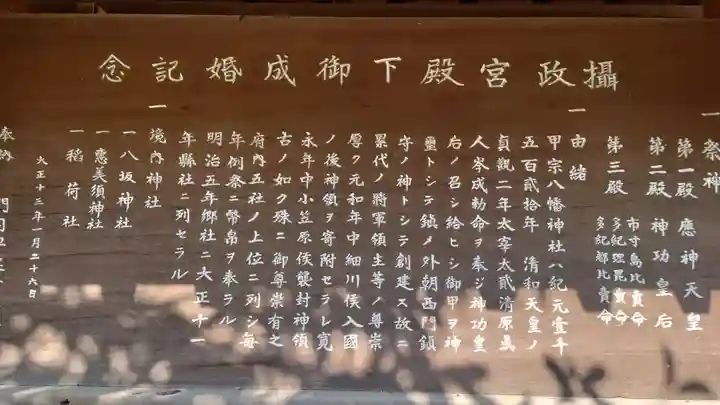 攝政宮殿下御成婚記念
一 祭神
第一殿 應神天皇
第二殿 神功皇后
第三殿
市寸島比賣命
多紀理毘賣命
多紀都比賣命
一 由緒
甲宗八幡神社ハ紀元壹千
五百貳拾年 清和天皇ノ
貞觀二年太宰太貳清原眞
人岑成勅命ヲ奉ジ神功皇
后ノ召シ給ヒシ御甲ヲ神
璽トシテ鎮メ外朝西門鎮
守ノ神トシテ創建ス故ニ
累代ノ將軍領主等ノ尊崇
厚ク元和年中細川侯入國
ノ後神領ヲ寄附セラレ寛
永年中小笠原侯襲封神領
古ノ如ク殊ニ御尊崇有之
府内五社ノ上位ニ列シ毎
年例祭ニ幣帛ヲ奉ラル
明治五年郷社ニ大正十一
年縣社ニ列セラル
一 境内神社
一 八坂神社
一 惠美須神社
一 稻荷社
大正十三年一月二十六日
奉納 門司